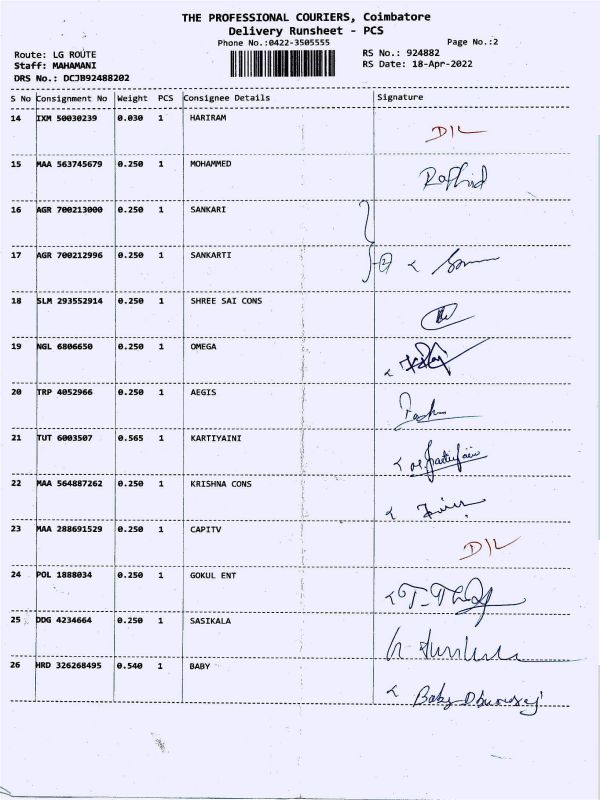 THE PROFESSIONAL COURIERS, Coimbatore
Delivery Runsheet - PCS
Phone No.:0422-3505555
Page No.:2
Route: LG ROUTE
RS No.: 924882
Staff: MAHAMANI
RS Date: 18-Apr-2022
DRS No.: DCJB92488202
S No Consignment No Weight PCS Consignee Details Signature
14 IXM 50030239 0.030 1 HARIRAM
D/L
15 MAA 563745679 0.250 1 MOHAMMED
16 AGR 700213000 0.250 1 SANKARI
17 AGR 700212996 0.250 1 SANKARTI
2
18 SLM 293552914 0.250 1 SHREE SAI CONS
19 NGL 6806650 0.250 1 OMEGA
20 TRP 4052966 0.250 1 AEGIS
21 TUT 6003507 0.565 1 KARTIYAINI
22 MAA 564887262 0.250 1 KRISHNA CONS
23 MAA 288691529 0.250 1 CAPITV
D/L
24 POL 1888034 0.250 1 GOKUL ENT
25 DDG 4234664 0.250 1 SASIKALA
26 HRD 326268495 0.540 1 BABY
Baby